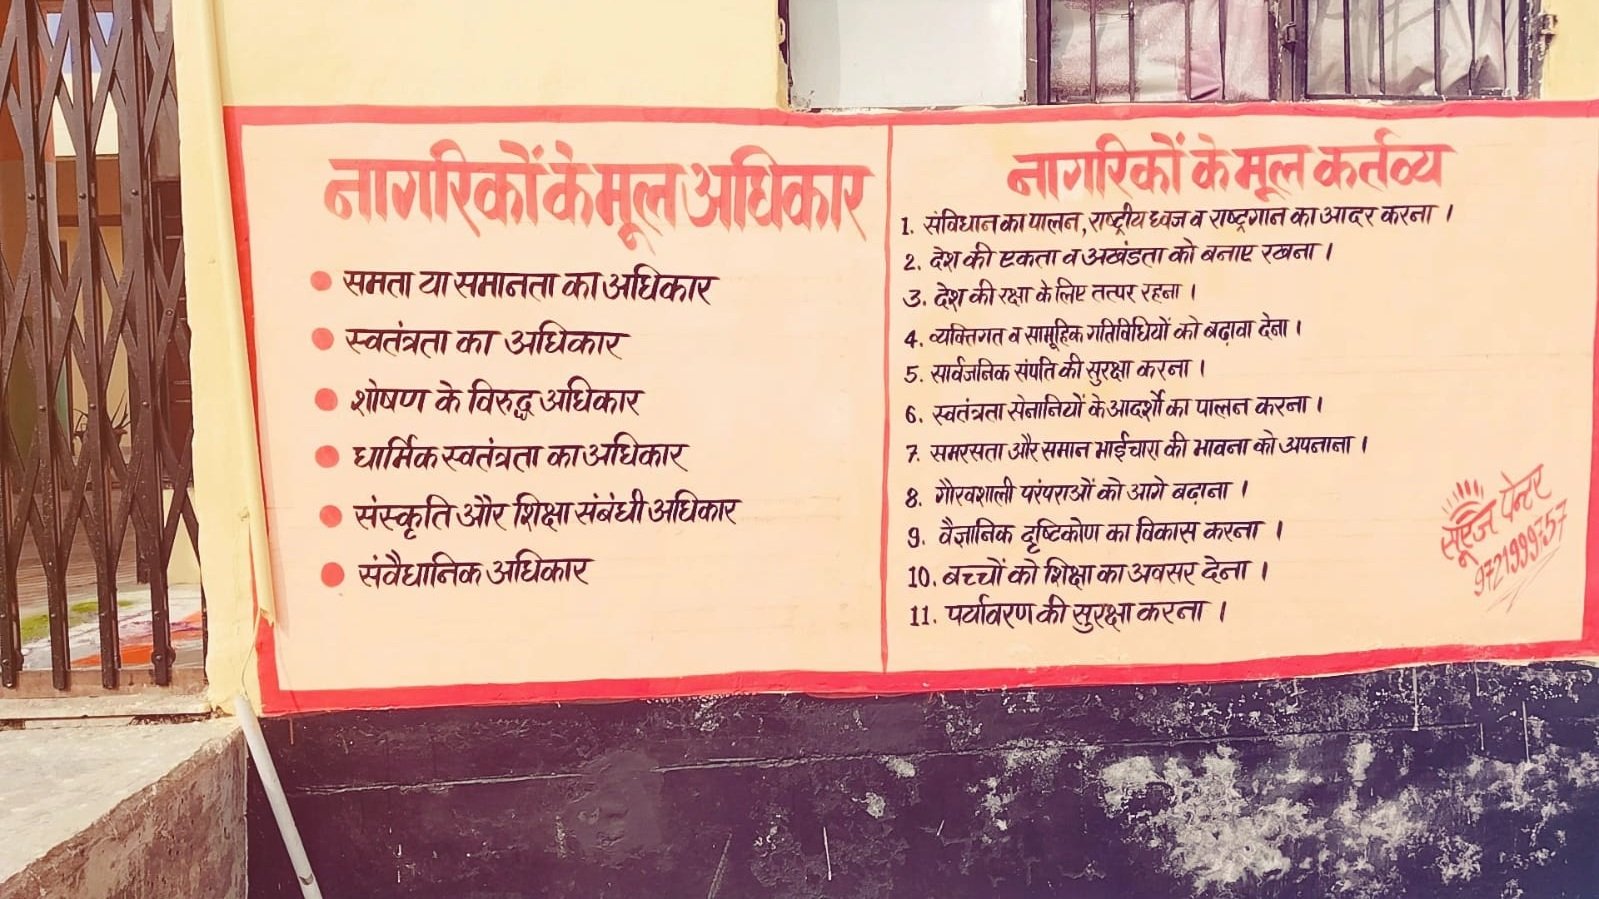 नागरिकों के मूल अधिकार
समता या समानता का अधिकार
स्वतंत्रता का अधिकार
शोषण के विरुद्ध अधिकार
धार्मिक स्वतंत्रता का अधिकार
संस्कृति और शिक्षा संबंधी अधिकार
संवैधानिक अधिकार
नागरिकों के मूल कर्तव्य
1. संविधान का पालन, राष्ट्रीय ध्वज व राष्ट्रगान का आदर करना ।
2. देश की एकता व अखंडता को बनाए रखना ।
3. देश की रक्षा के लिए तत्पर रहना ।
4. व्यक्तिगत व सामूहिक गतिविधियों को बढ़ावा देना ।
5. सार्वजनिक संपति की सुरक्षा करना ।
6. स्वतंत्रता सेनानियों के आदर्शो का पालन करना ।
7. समरसता और समान भाईचारा की भावना को अपनाना ।
8. गौरवशाली परंपराओं को आगे बढ़ाना ।
9. वैज्ञानिक दृष्टिकोण का विकास करना ।
10. बच्चों को शिक्षा का अवसर देना ।
11. पर्यावरण की सुरक्षा करना ।
सूरज पेन्टर
9721999757